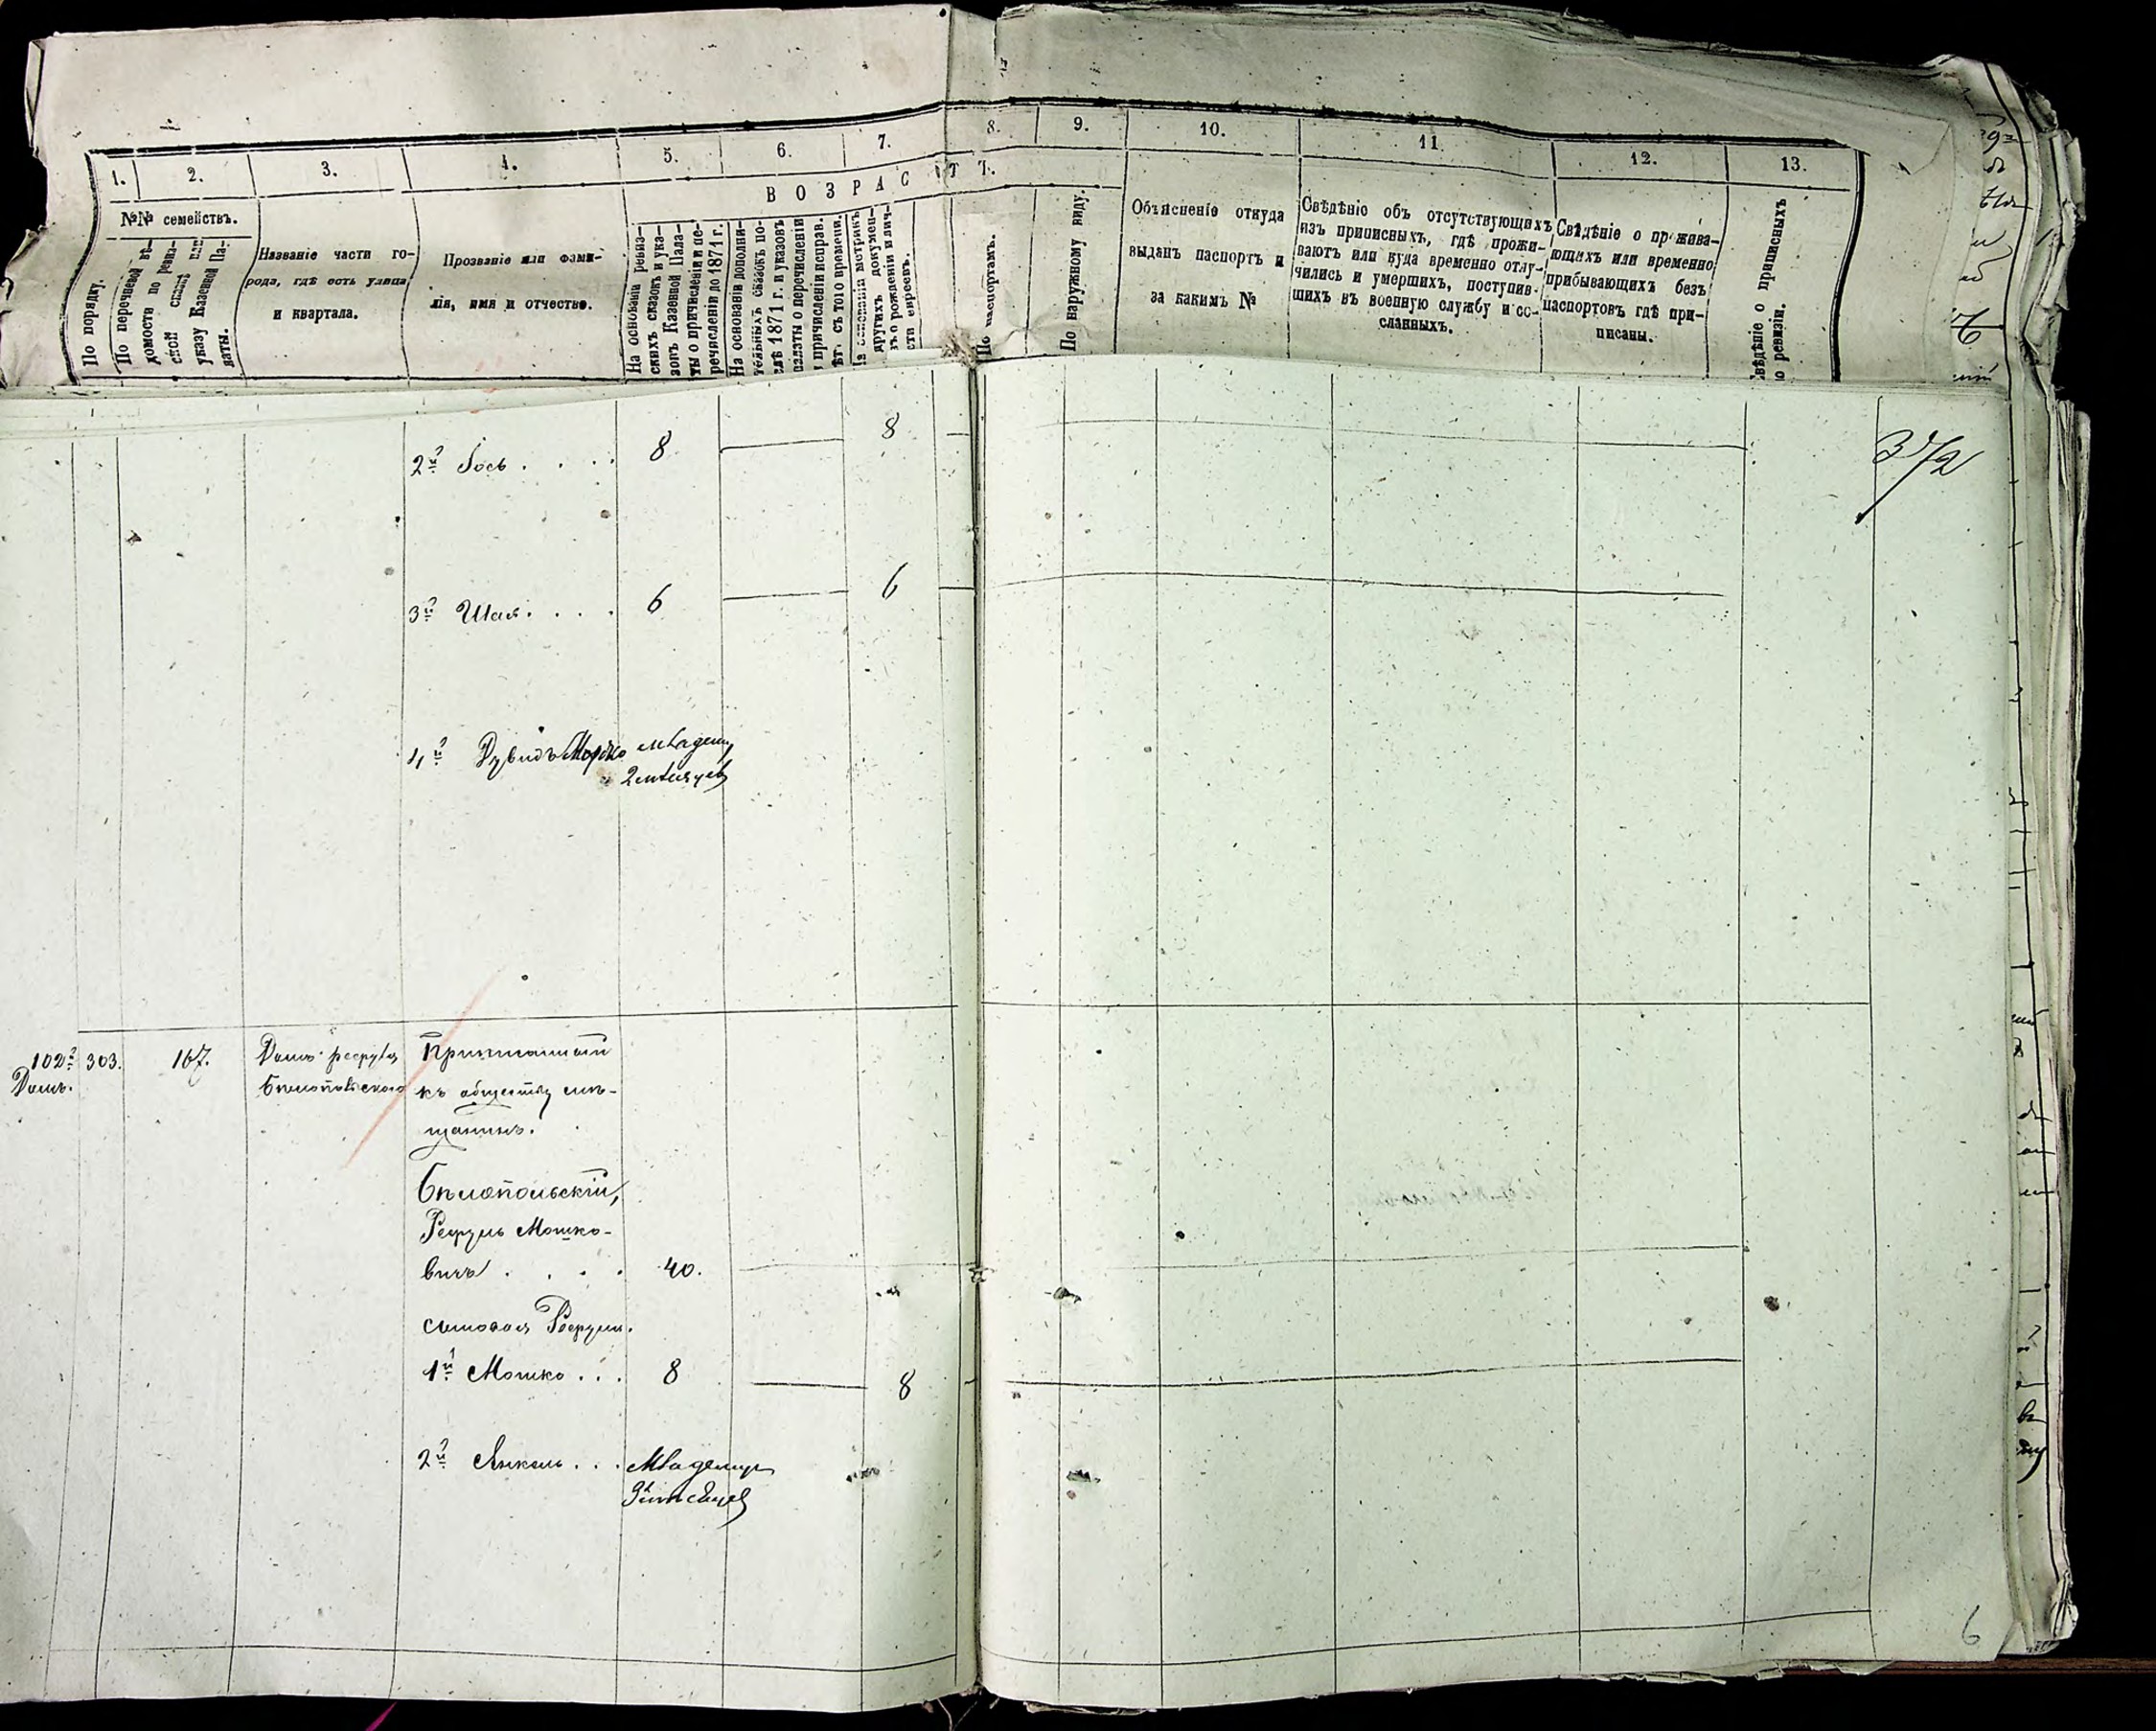 1. 2. 3. 4. 5. 6. 7. 8. 9. 10. 11. 12. 13.
ВОЗРАСТЪ.
№№ семействъ.
По порядку.
По перечневой вѣ-
домости по ревиз-
ской сказкѣ или
указу Казенной Па-
латы.
Названіе части го-
рода, гдѣ есть улица
и квартала.
Прозваніе или фами-
лія, имя и отчество.
На основаніи ревиз-
скихъ сказокъ и ука-
зовъ Казенной Пала-
ты о причисленіи и пе-
речисленіи до 1871 г.
На основаніи дополни-
тельныхъ сказокъ по-
слѣ 1871 г. и указовъ
палаты о перечисленіи
и причисленіи исправ.
лѣт. съ того времени.
На основаніи метрикъ
другихъ докумен-
тъ о рожденіи и лич-
сти евреевъ.
По паспортамъ.
По наружному виду.
Объясненіе откуда
выданъ паспортъ и
за какимъ №
Свѣдѣніе объ отсутствующихъ
изъ приписныхъ, гдѣ прожи-
ваютъ или куда временно отлу-
чились и умершихъ, поступив-
шихъ въ военную службу и сс-
сланныхъ.
Свѣдѣніе о прожива-
ющихъ или временно
прибывающихъ безъ
паспортовъ гдѣ при-
писаны.
свѣдѣніе о приписныхъ
по ревизіи.
372
2й Іось . . . . 8 8
3й Шая . . . . 6 6
4й Дувидъ Мордко младенец
2 мѣсяцев
102й 303. 167. Домъ
Домъ.
къ обществу мѣ-
щанинъ.
Бѣлопольскій,
Мошко-
вичъ . . . . 40.
сыновья
1й Мошко . . . 8 8
2й Янкель . . . Младенец
6